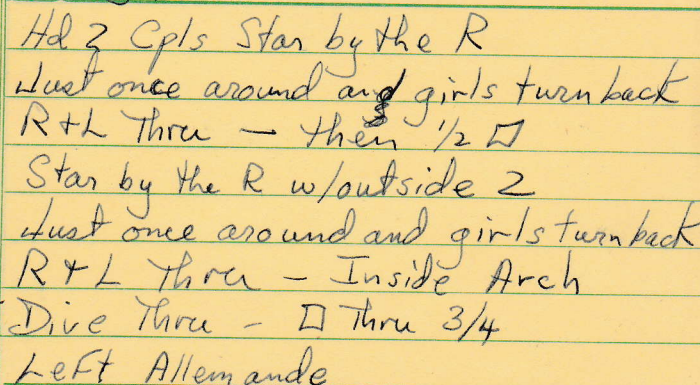 Hd 2 Cpls Star by the R
Just once around and girls turn back
R+L Thru — then 1/2 □
Star by the R w/outside 2
Just once around and girls turn back
R+L Thru - Inside Arch
Dive Thru - □ Thru 3/4
Left Allemande